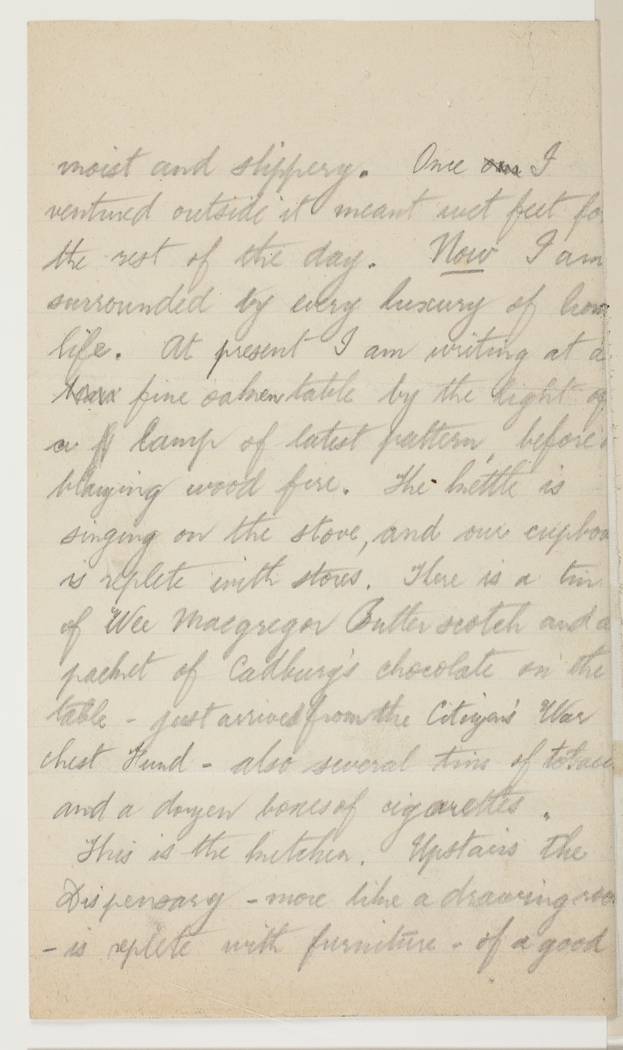 moist and slippery. Once I
ventured outside it meant wet feet fo
the rest of the day. Now I am
surrounded by every luxury of hom
life. At present I am writing at a
fine oaken table by the light of
a lamp of latest pattern, before a
blazing wood fire. The kettle is
singing on the stove, and our cupboa
is replete with stores. There is a tin
of Wee Macgregor Butter scotch and a
packet of Cadbury's chocolate on the
table - just arrived from the Citizen's War
chest Fund - also several tins of tobacc
and a dozen boxes of cigarettes.
This is the kitchen. Upstairs the
Dispensary - more like a drawing roo
- is replete with furniture - of a good